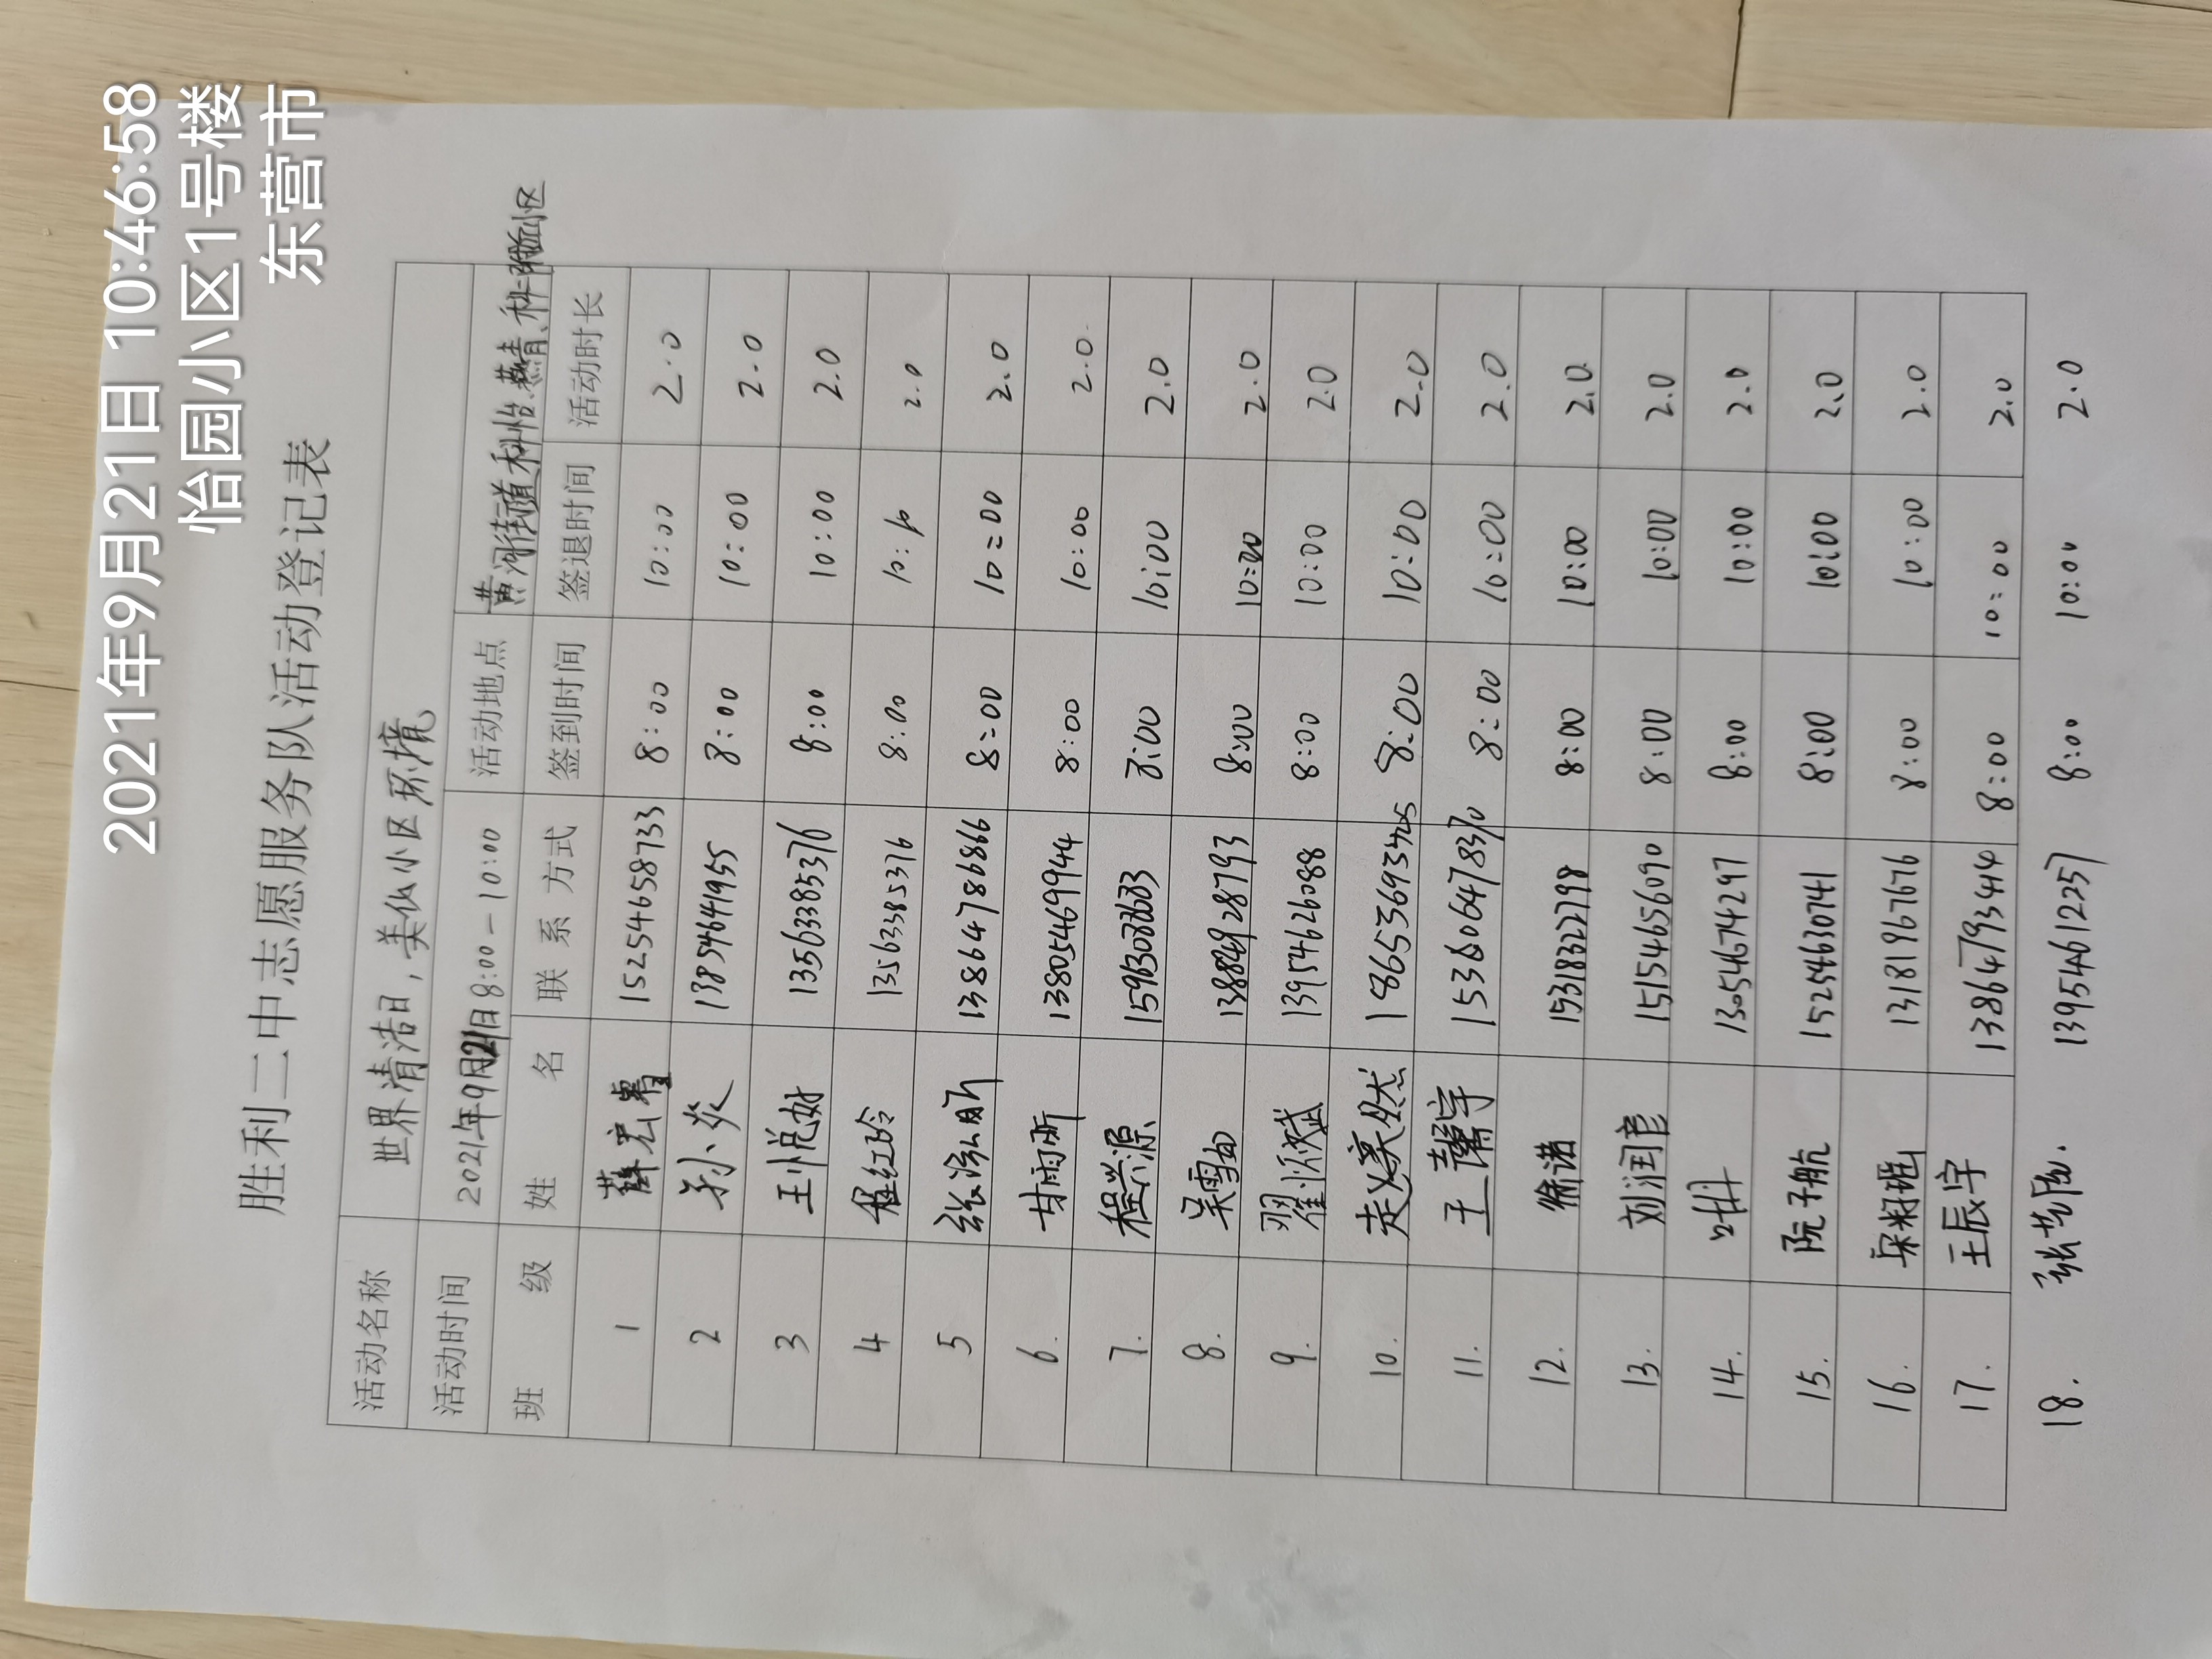 2021年9月21日 10:46:58
怡园小区1号楼
东营市
胜利二中志愿服务队活动登记表
活动名称 世界清洁日，美化小区环境
活动时间 2021年9月21日8:00-10:00 活动地点 黄河街道科怡
班 级 姓 名 联系方式 签到时间 签退时间 活动时长
1 薛宏 15254658733 8:00 10:00 2.0
2 孙小炎 13854641955 8:00 10:00 2.0
3 王悦 13563385376 8:00 10:00 2.0
4 程红玲 13563385376 8:00 2.0
5 张泓昕 13864786866 8:00 10:00 2.0
6. 甘雨昕 13805469944 8:00 10:00 2.0
7. 程兴源 8:00 10:00 2.0
8. 吴雪 13884928793 8:00 10:00 2.0
9. 翟斌 13954626088 8:00 10:00 2.0
10. 赵奕然 8:00 10:00 2.0
11. 王馨宇 8:00 10:00 2.0
12. 徐诺 15318322798 8:00 10:00 2.0
13. 刘润 15154656090 8:00 10:00 2.0
14. 叶 13054674297 8:00 10:00 2.0
15. 阮子航 15254630741 8:00 10:00 2.0
16. 13181967676 8:00 10:00 2.0
17. 王辰宇 13864793444 8:00 10:00 2.0
18. 张 13954612257 8:00 10:00 2.0